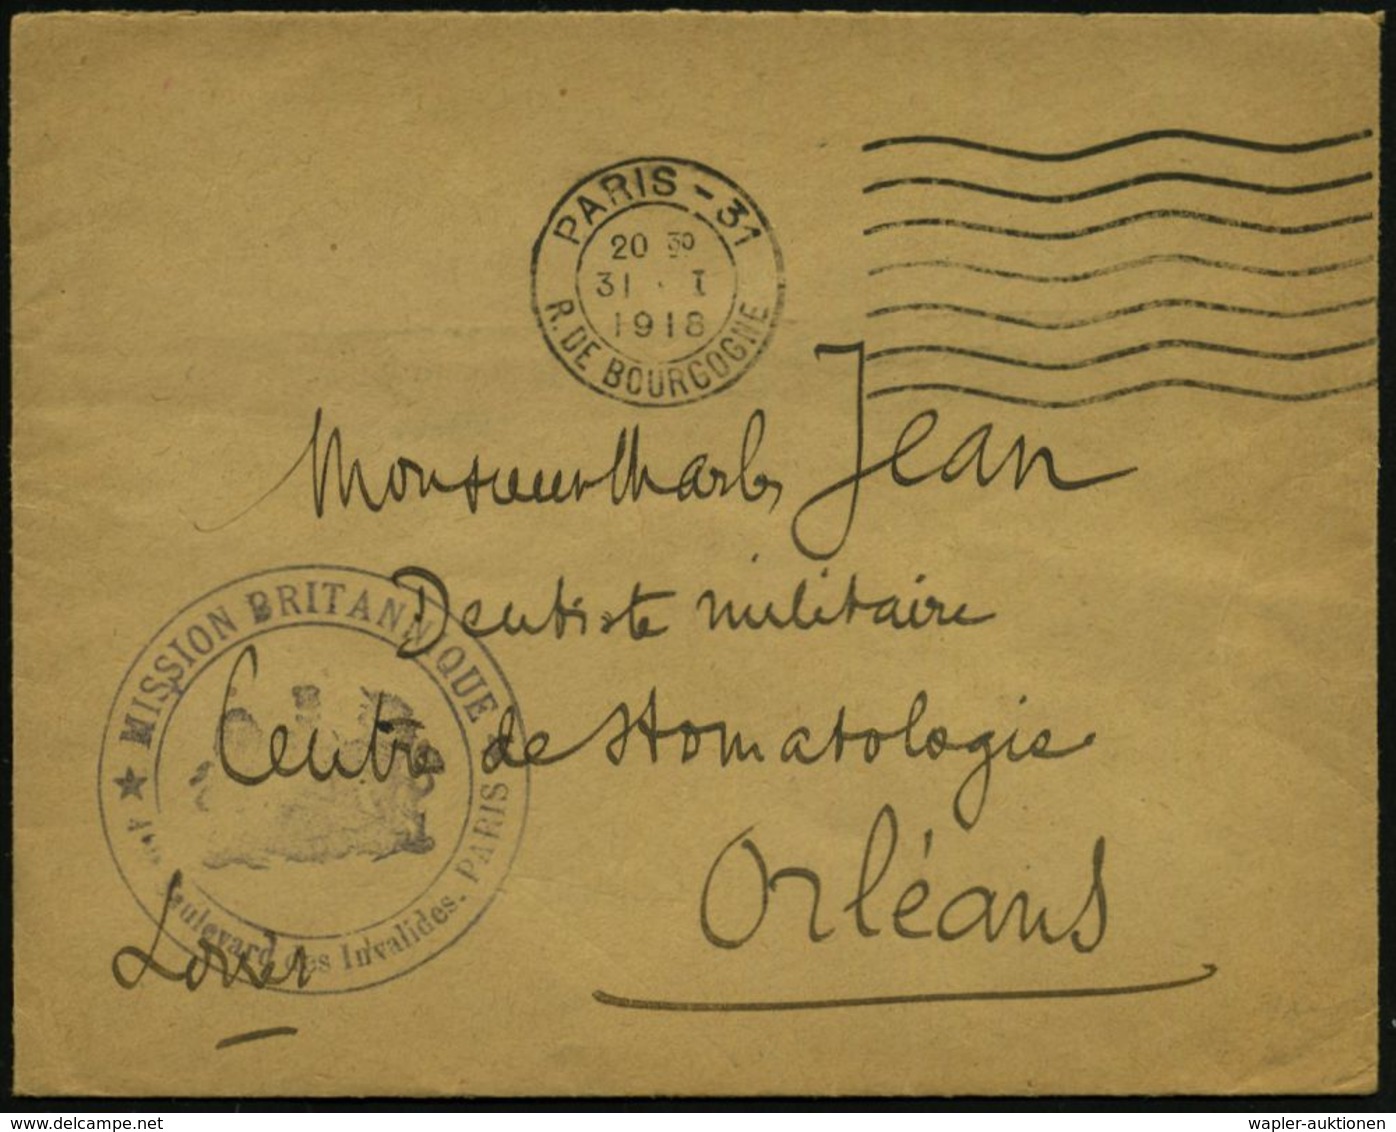 PARIS - 31
20 30
31 · I
1918
R. DE BOURGOGNE
Monsieur Charles Jean
Dentiste militaire
Centre de Stomatologie
Orléans
Loiret
★ MISSION BRITANNIQUE ★
Boulevard des Invalides. PARIS
www.delcampe.net
wapler-auktionen